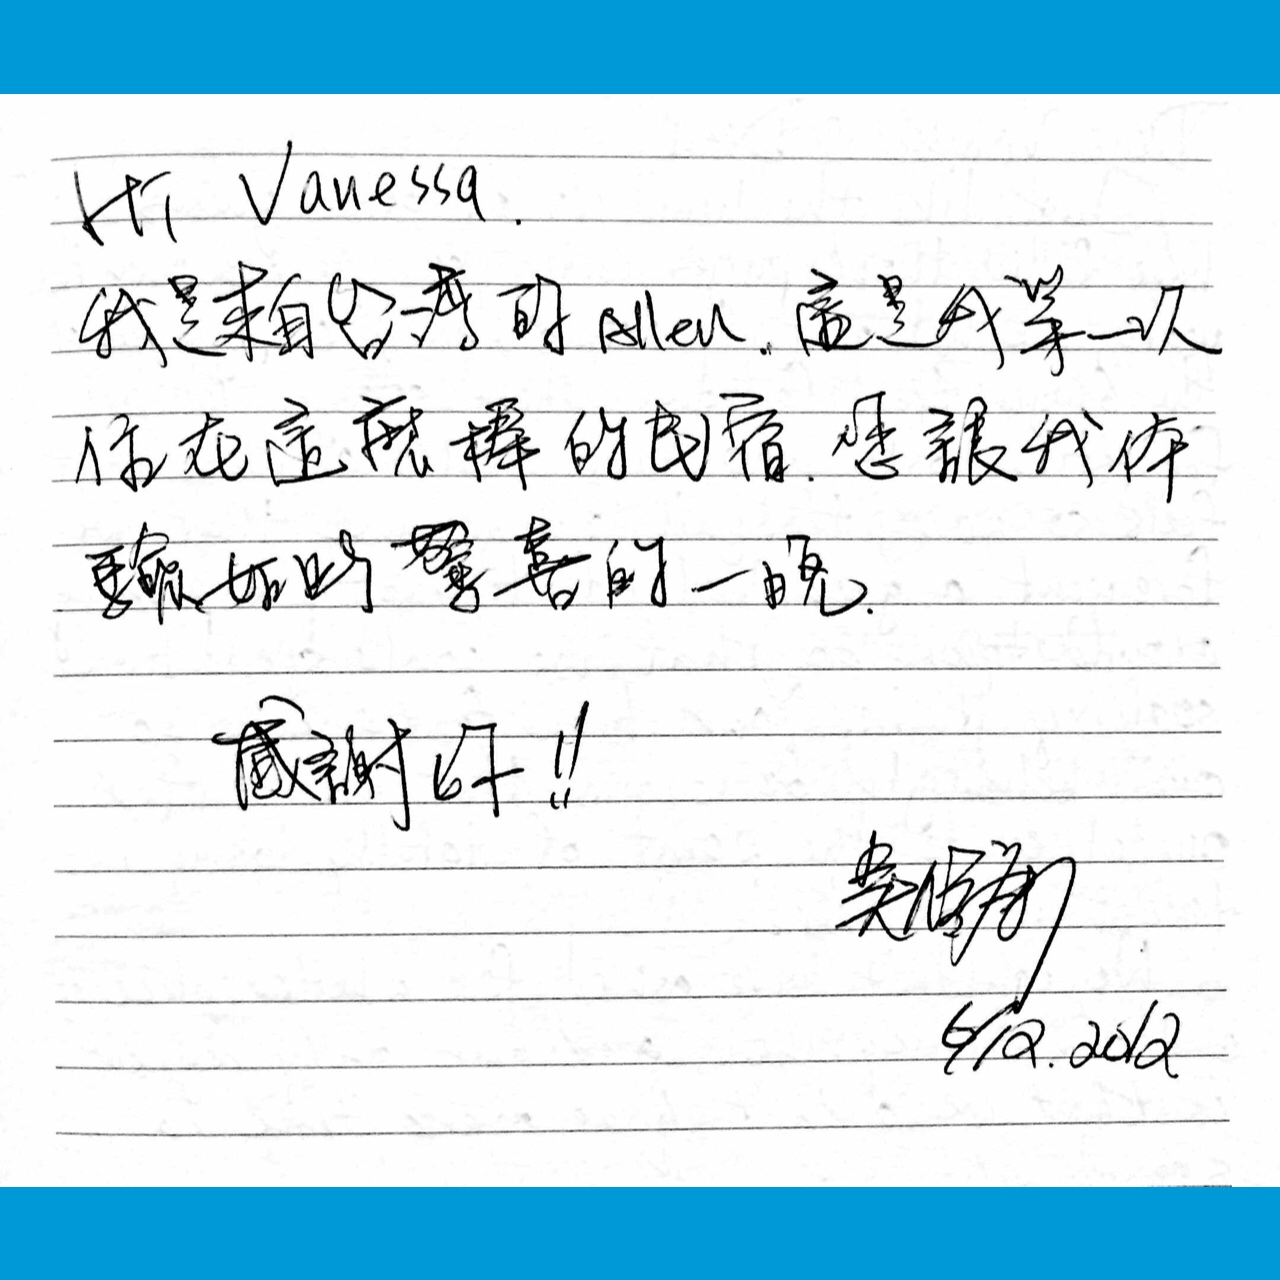 Hi Vanessa.
我是來自台灣的Allen. 這是我第一次
住在這麼棒的民宿. 您讓我体
驗如此驚喜的一晚.
感謝!!
吳
2012